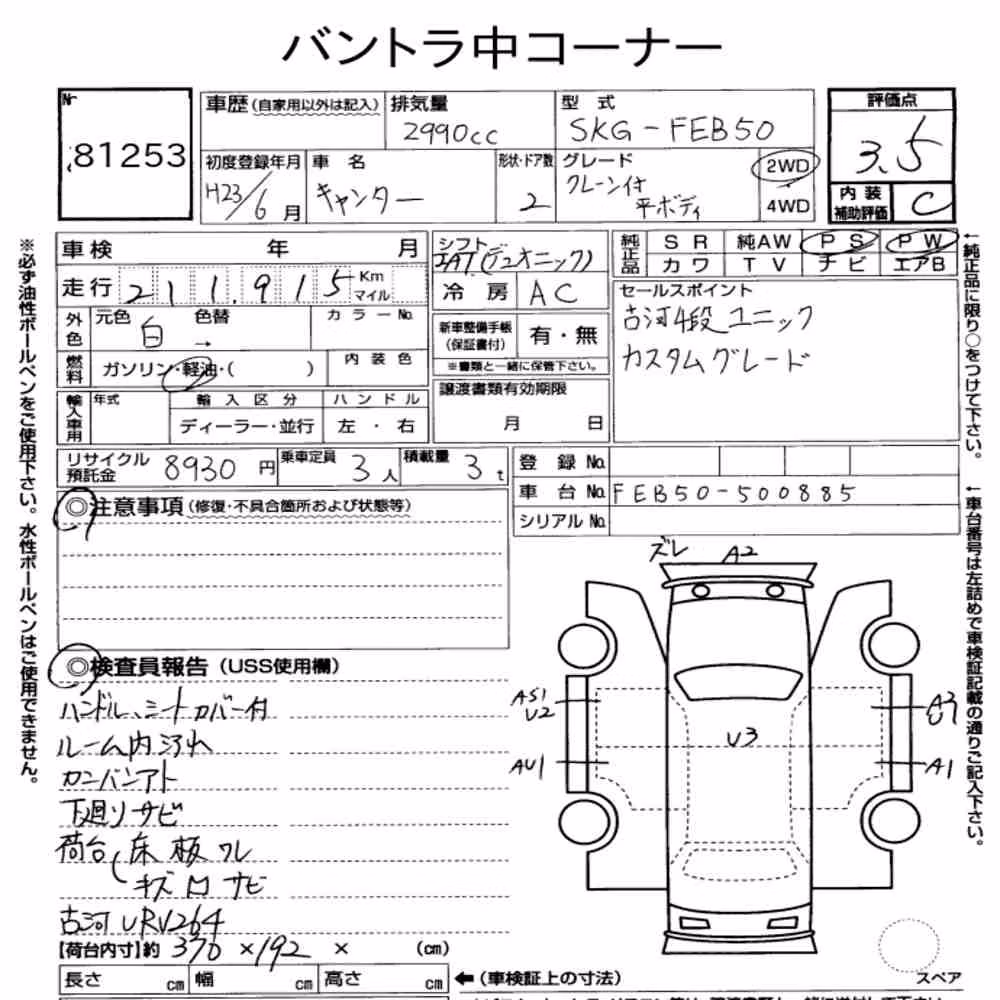 バントラ中コーナー
Nr
81253
車歴(自家用以外は記入)
排気量
2990cc
型 式
SKG-FEB50
評価点
3.5
内装
補助評価
C
初度登録年月
H23/6月
車 名
キャンター
形状・ドア数
2
グレード
クレーン付
平ボディ
2WD
4WD
車検 年 月
走行 211,915 Km
マイル
外色
元色 色替 カラーNo.
白 →
燃料
ガソリン・軽油・( )
内装色
輸入車用
年式
輸入区分
ハンドル
ディーラー・並行
左・右
シフト
IAT.(デュオニック)
冷房
AC
新車整備手帳
(保証書付)
有・無
※書類と一緒に保管下さい。
譲渡書類有効期限
月 日
純正品
SR 純AW PS PW
カワ TV ナビ エアB
セールスポイント
古河4段ユニック
カスタムグレード
←純正品に限り○をつけて下さい。
※必ず油性ボールペンをご使用下さい。水性ボールペンはご使用できません。
リサイクル
預託金
8930円
乗車定員
3人
積載量
3t
登録No.
車台No. FEB50-500885
シリアルNo.
←車台番号は左詰めで車検証記載の通りご記入下さい。
◎注意事項(修復・不具合箇所および状態等)
◎検査員報告(USS使用欄)
ハンドル、シートカバー付
ルーム内汚れ
カンバンアト
下廻りサビ
荷台(床板ワレ
キズ凹サビ
古河URV264
【荷台内寸】約 370×192× (cm)
長さ cm 幅 cm 高さ cm
←(車検証上の寸法)
ズレ A2
AS1
U2
AU1
U3
A1
スペア